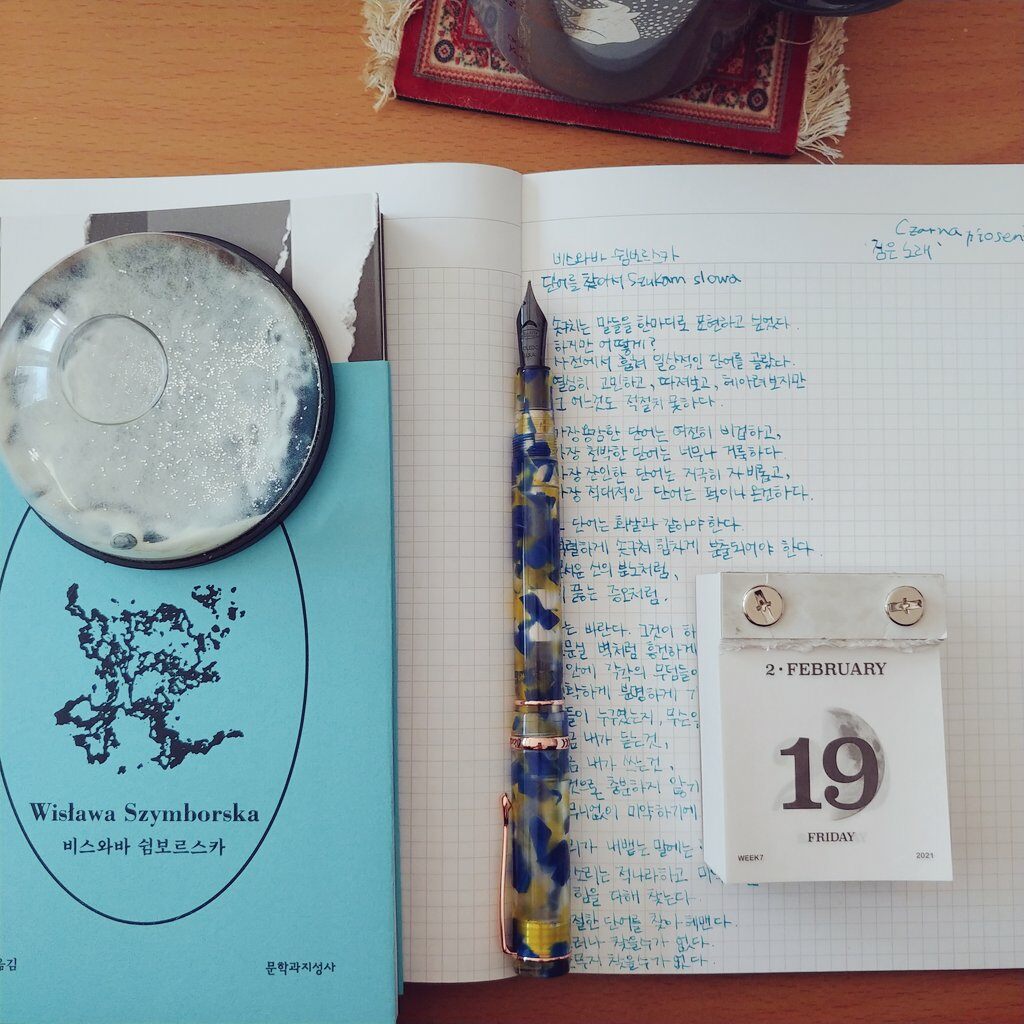 Czarna piosen
'검은 노래'
비스와바 쉼보르스카
단어를 찾아서 Szukam słowa
솟구치는 말들을 한마디로 표현하고 싶었다.
하지만 어떻게?
사전에서 훔쳐 일상적인 단어를 골랐다.
열심히 고민하고, 따져보고, 헤아려보지만
그 어느것도 적절치 못하다.
가장 용감한 단어는 여전히 비겁하고,
가장 천박한 단어는 너무나 거룩하다.
가장 잔인한 단어는 지극히 자비롭고,
가장 적대적인 단어는 퍽이나 온건하다.
단어는 화산과 같아야 한다.
격렬하게 솟구쳐 힘차게 분출되어야 한다.
서운 신의 분노처럼,
끓는 증오처럼.
는 바란다. 그것이 하
문실 벽처럼 흥건하게
안에 각각의 무덤들이
확하게 분명하게 기
들이 누구였는지, 무슨일
금 내가 듣는것,
금 내가 쓰는것,
것으론 충분하지 않기
무니없이 미약하기에
리가 내뱉는 말에는
소리는 적나라하고 미
힘을 다해 찾는다.
절한 단어를 찾아 헤맨다.
러나 찾을수가 없다.
무지 찾을수가 없다.
Wisława Szymborska
비스와바 쉼보르스카
옮김
문학과지성사
2·FEBRUARY
19
FRIDAY
WEEK7
2021